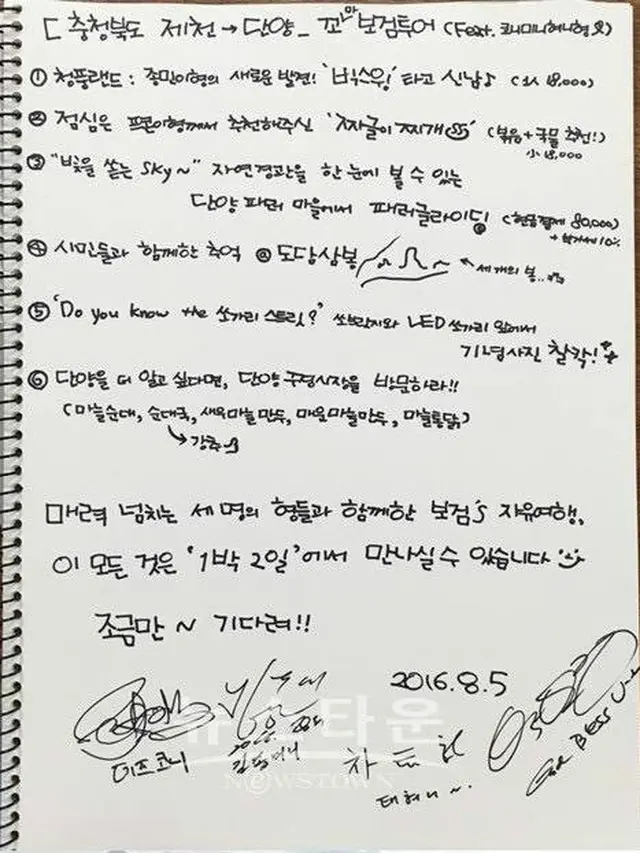 [충청북도 제천→단양_ 꼬마보검투어 (Feat. 코니미니허니형
① 청풍랜드 : 종민이형의 새로운 발견! '빅스윙' 타고 신남♪ (1人 18,000)
② 점심은 편의형께서 추천해주신 '짜글이 찌개' (볶음+국물 추천!)
小 18,000
③ "빛을 쏟는 sky~" 자연경관을 한 눈에 볼 수 있는
단양 파러 마을에서 패러글라이딩! (현금결제 80,000)
④ 시민들과 함께한 추억 @ 도담삼봉 세개의 봉..
⑤ 'Do you know the 쏘가리 스트릿?' 쏘브라치와 LED 쏘가리 앞에서
기념사진 찰칵!
⑥ 단양을 더 알고 싶다면, 단양 구경시장을 방문하라!!
(마늘순대, 순대국, 새우마늘만두, 매운마늘만두, 마늘통닭)
강추
매력 넘치는 세 명의 형들과 함께한 보검's 자유여행,
이 모든 것은 '1박 2일'에서 만나실 수 있습니다
조금만 ~ 기다려!!
2016.8.5
미즈코니
차태현
태허니~.
God BLESS U
뉴스타운
NEWSTOWN